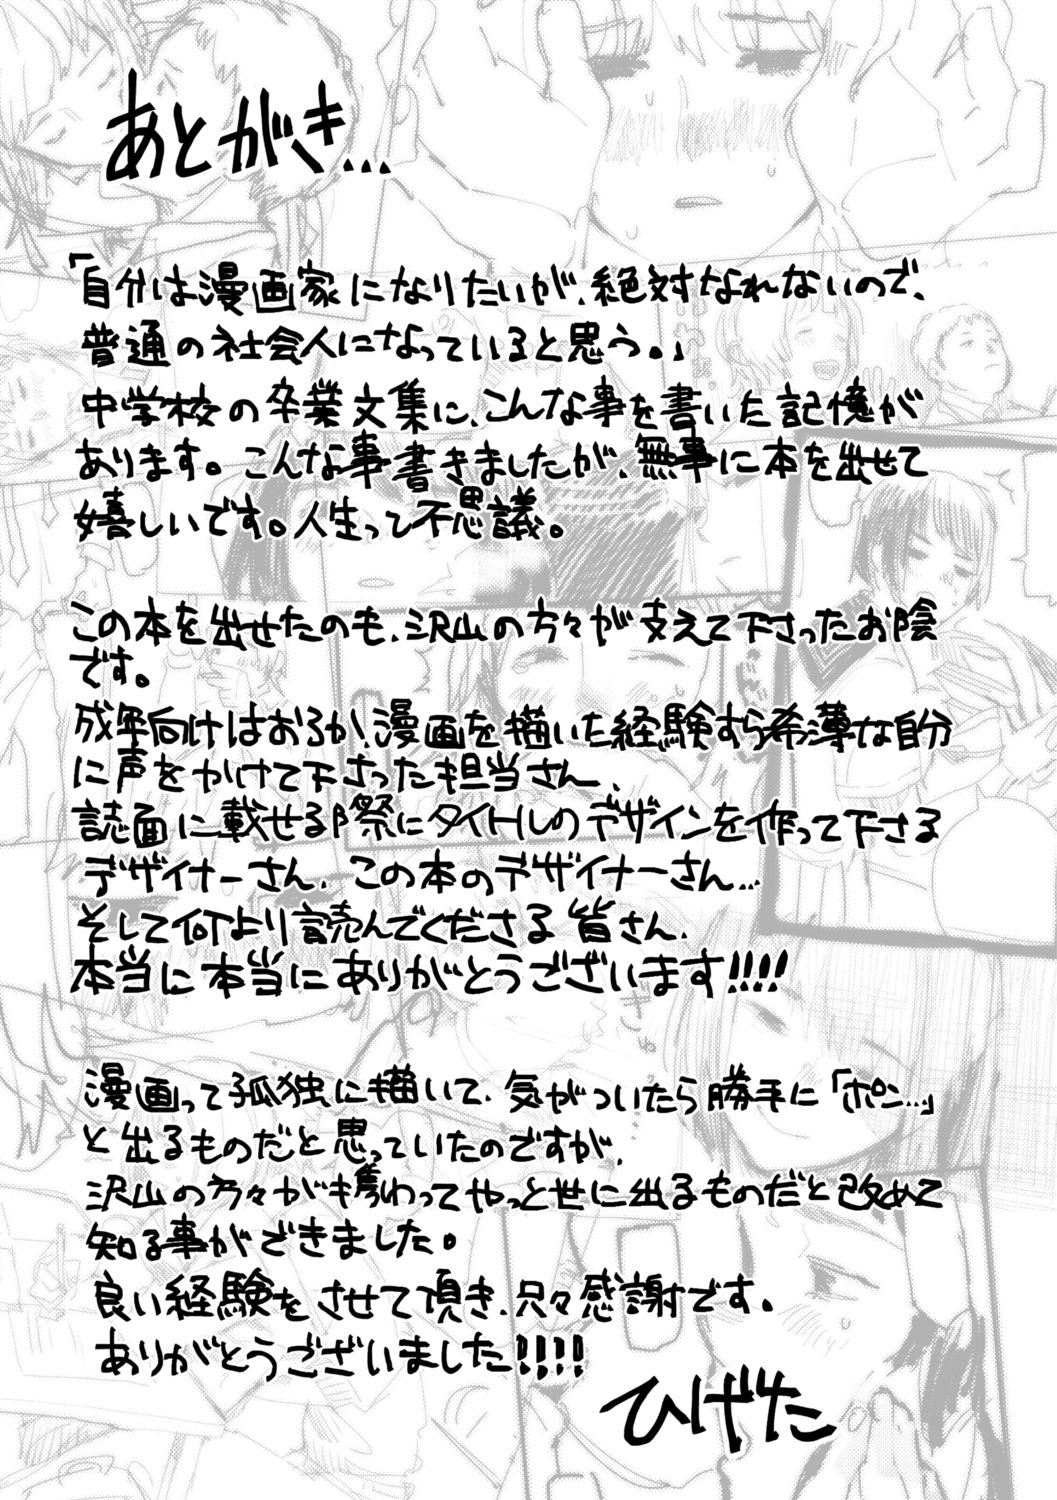 あとがき…
「自分は漫画家になりたいが、絶対なれないので、
普通の社会人になっていると思う。」
中学校の卒業文集に、こんな事を書いた記憶が
あります。こんな事書きましたが、無事に本を出せて
嬉しいです。人生って不思議。
この本を出せたのも、沢山の方々が支えて下さったお陰
です。
成年向けはおろか、漫画を描いた経験すら希薄な自分
に声をかけて下さった担当さん、
誌面に載せる際にタイトルのデザインを作って下さる
デザイナーさん、この本のデザイナーさん…
そして何より読んでくださる皆さん、
本当に本当にありがとうございます!!!!
漫画って孤独に描いて、気がついたら勝手に「ポン…」
と出るものだと思っていたのですが、
沢山の方々が携わってやっと世に出るものだと改めて
知る事ができました。
良い経験をさせて頂き、只々感謝です。
ありがとうございました!!!!
ひげた